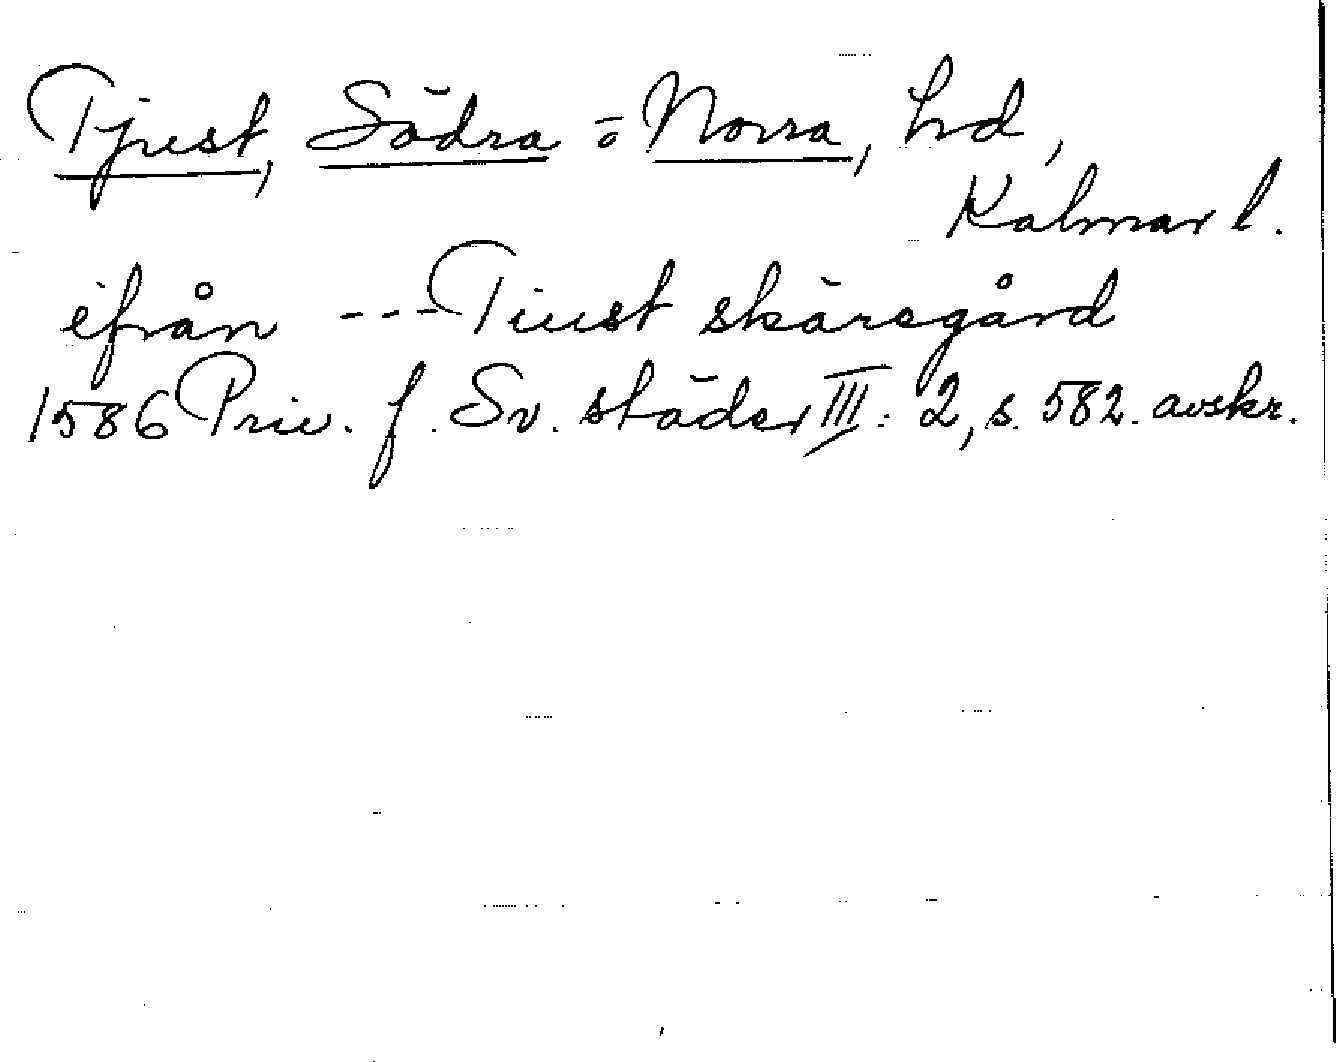 Tjust, Södra o Norra, hd,
Kalmar l.
ifrån --- Tiust skäregård
1586 Priv. f. Sv. städer III: 2, s. 582. avskr.